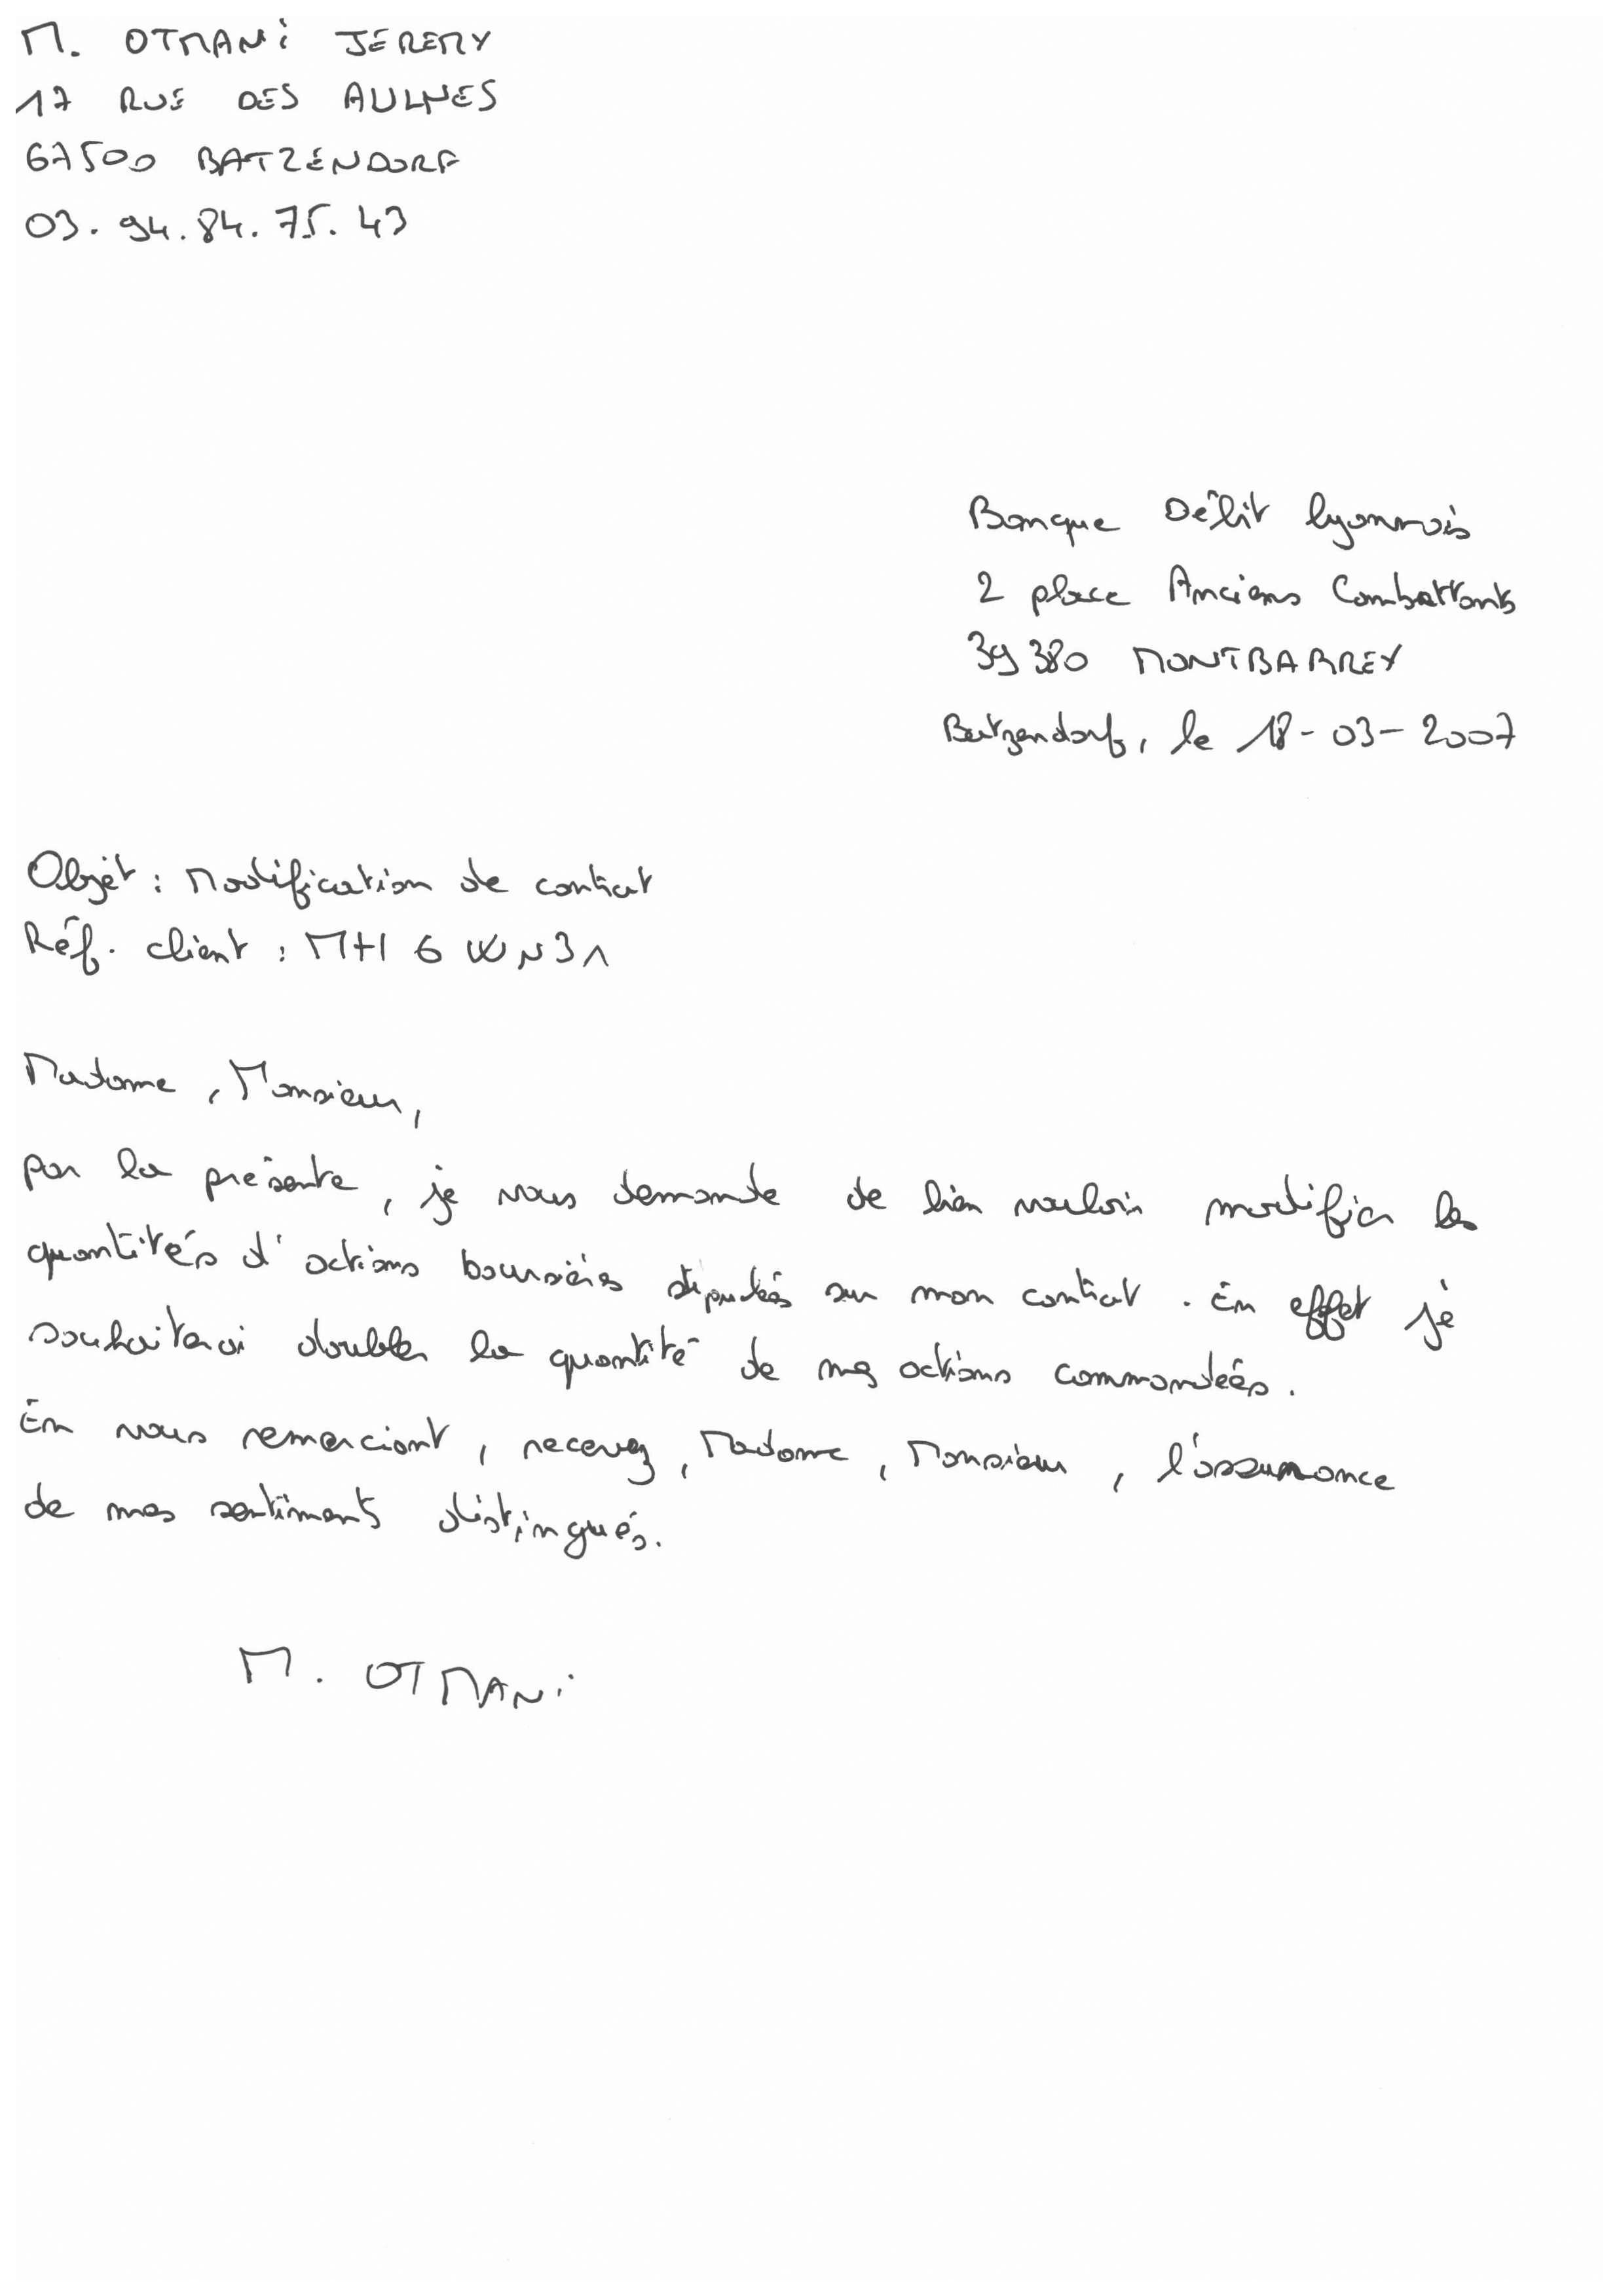 M. OTMANi JEREMY
17 RUE DES AULNES
67500 BATZENDORF
03.94.84.75.43
Banque Délit lyonnais
2 place Anciens Combattants
39380 MONTBARREY
Batzendorf, le 18-03-2007
Objet : Modification de contrat
Réf. client : MH6WN31
Madame, Monsieur,
par la présente, je vous demande de bien vouloir modifier les
quantités d'actions boursières stipulées sur mon contrat. En effet je
souhaiterai doubler la quantité de mes actions commandées.
En vous remerciant, recevez, Madame, Monsieur, l'assurance
de mes sentiments distingués.
M. OTMANi